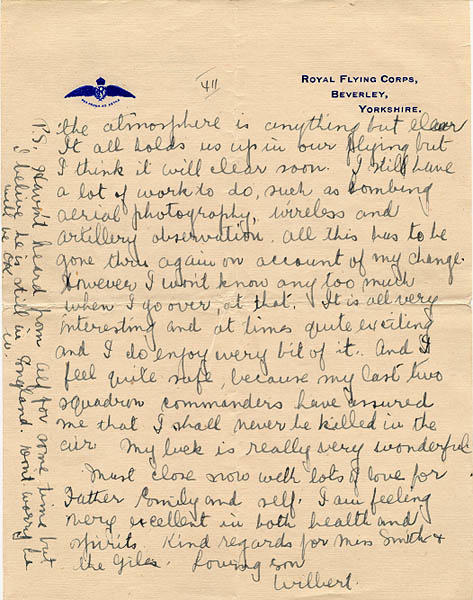 4
ROYAL FLYING CORPS,
BEVERLEY,
YORKSHIRE.
the atmosphere is anything but clear
It all holds us up in our flying but
I think it will clear soon. I still have
a lot of work to do, such as bombing
aerial photography, wireless and
artillery observation. all this has to be
gone thru again on account of my change.
However I won't know any too much
when I go over, at that. It is all very
interesting and at times quite exciting
and I do enjoy every bit of it. And I
feel quite safe, because my last two
squadron commanders have assured
me that I shall never be killed in the
air My luck is really very wonderful
Must close now with lots of love for
Father Emily and self. I am feeling
very excellent in both health and
spirits. Kind regards for Miss Smith &
the Giles. Loving son
Wilbert.
P.S. Haven't heard from Alf for some time but
I believe he is still in England. Dont worry he
will be OK
W.